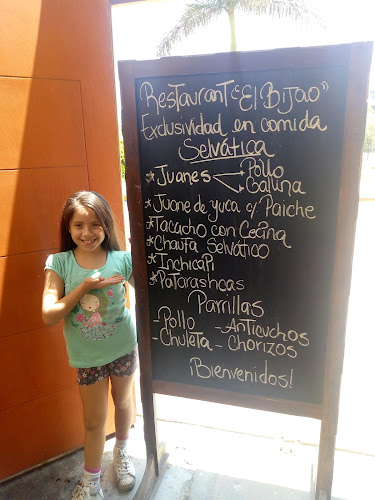 Restaurant "El Bijao"
Exclusividad en comida
Selvática
* Juanes Pollo
Gallina
* Juane de yuca c/ Paiche
* Tacacho con Cecina
* Chaufa Selvático
* Inchicapi
* Patarashcas
Parrillas
- Pollo - Anticuchos
- Chuleta - Chorizos
¡Bienvenidos!